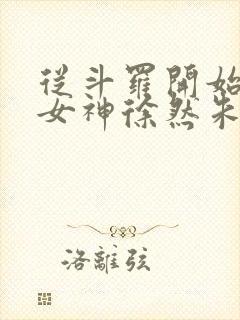 從斗羅開始
女神徐然朱
洛離弦